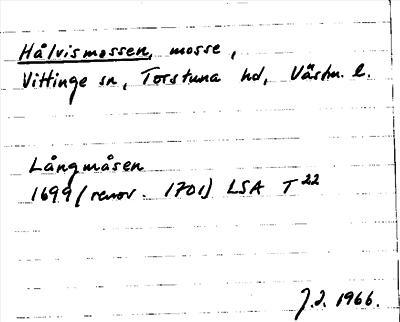 Hålvismossen, mosse,
Vittinge sn, Torstuna hd, Västm. l.
Långmåsen
1699 (renov. 1701) LSA T 22
J.I. 1966.